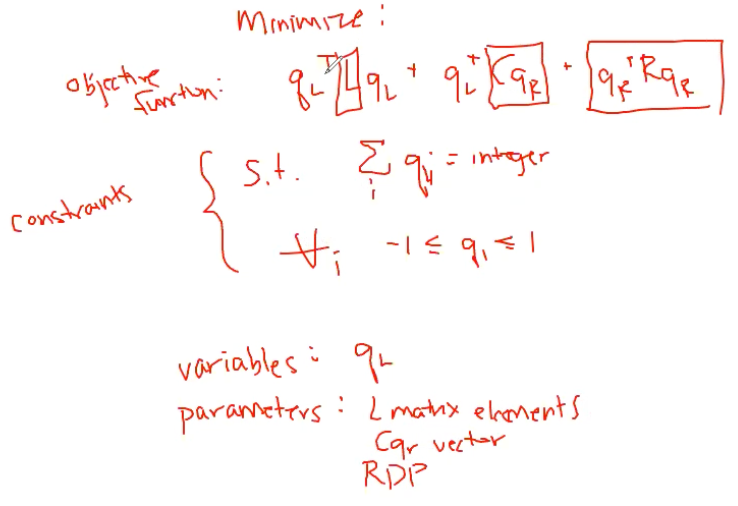 Minimize:
objective function: q_L^T L q_L + q_L^T C q_R + q_R^T R q_R
s.t. Σ_i q_i = integer
constraints
∀i -1 ≤ q_i ≤ 1
variables: q_L
parameters: L matrix elements
Cqr vector
RDP